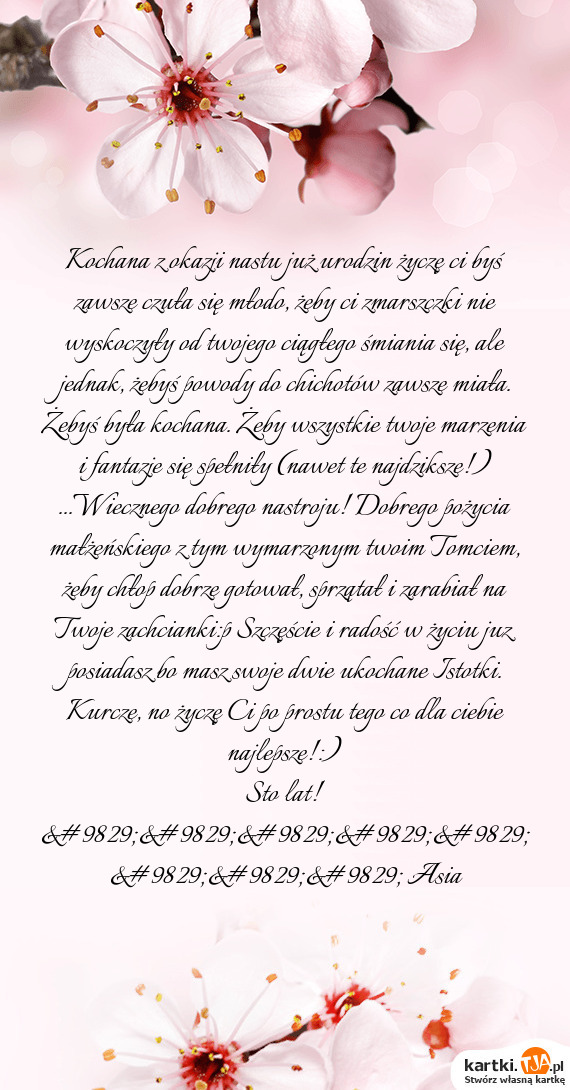 Kochana z okazji nastu już urodzin życzę ci byś
zawsze czuła się młodo, żeby ci zmarszczki nie
wyskoczyły od twojego ciągłego śmiania się, ale
jednak, żebyś powody do chichotów zawsze miała.
Żebyś była kochana. Żeby wszystkie twoje marzenia
i fantazje się spełniły (nawet te najdziksze!)
...Wiecznego dobrego nastroju! Dobrego pożycia
małżeńskiego z tym wymarzonym twoim Tomciem,
żeby chłop dobrze gotował, sprzątał i zarabiał na
Twoje zachcianki:p Szczęście i radość w życiu juz
posiadasz bo masz swoje dwie ukochane Istotki.
Kurcze, no życzę Ci po prostu tego co dla ciebie
najlepsze!:)
Sto lat!
&#9829;&#9829;&#9829;&#9829;&#9829;
&#9829;&#9829;&#9829; Asia
kartki.TJA.pl
Stwórz własną kartkę